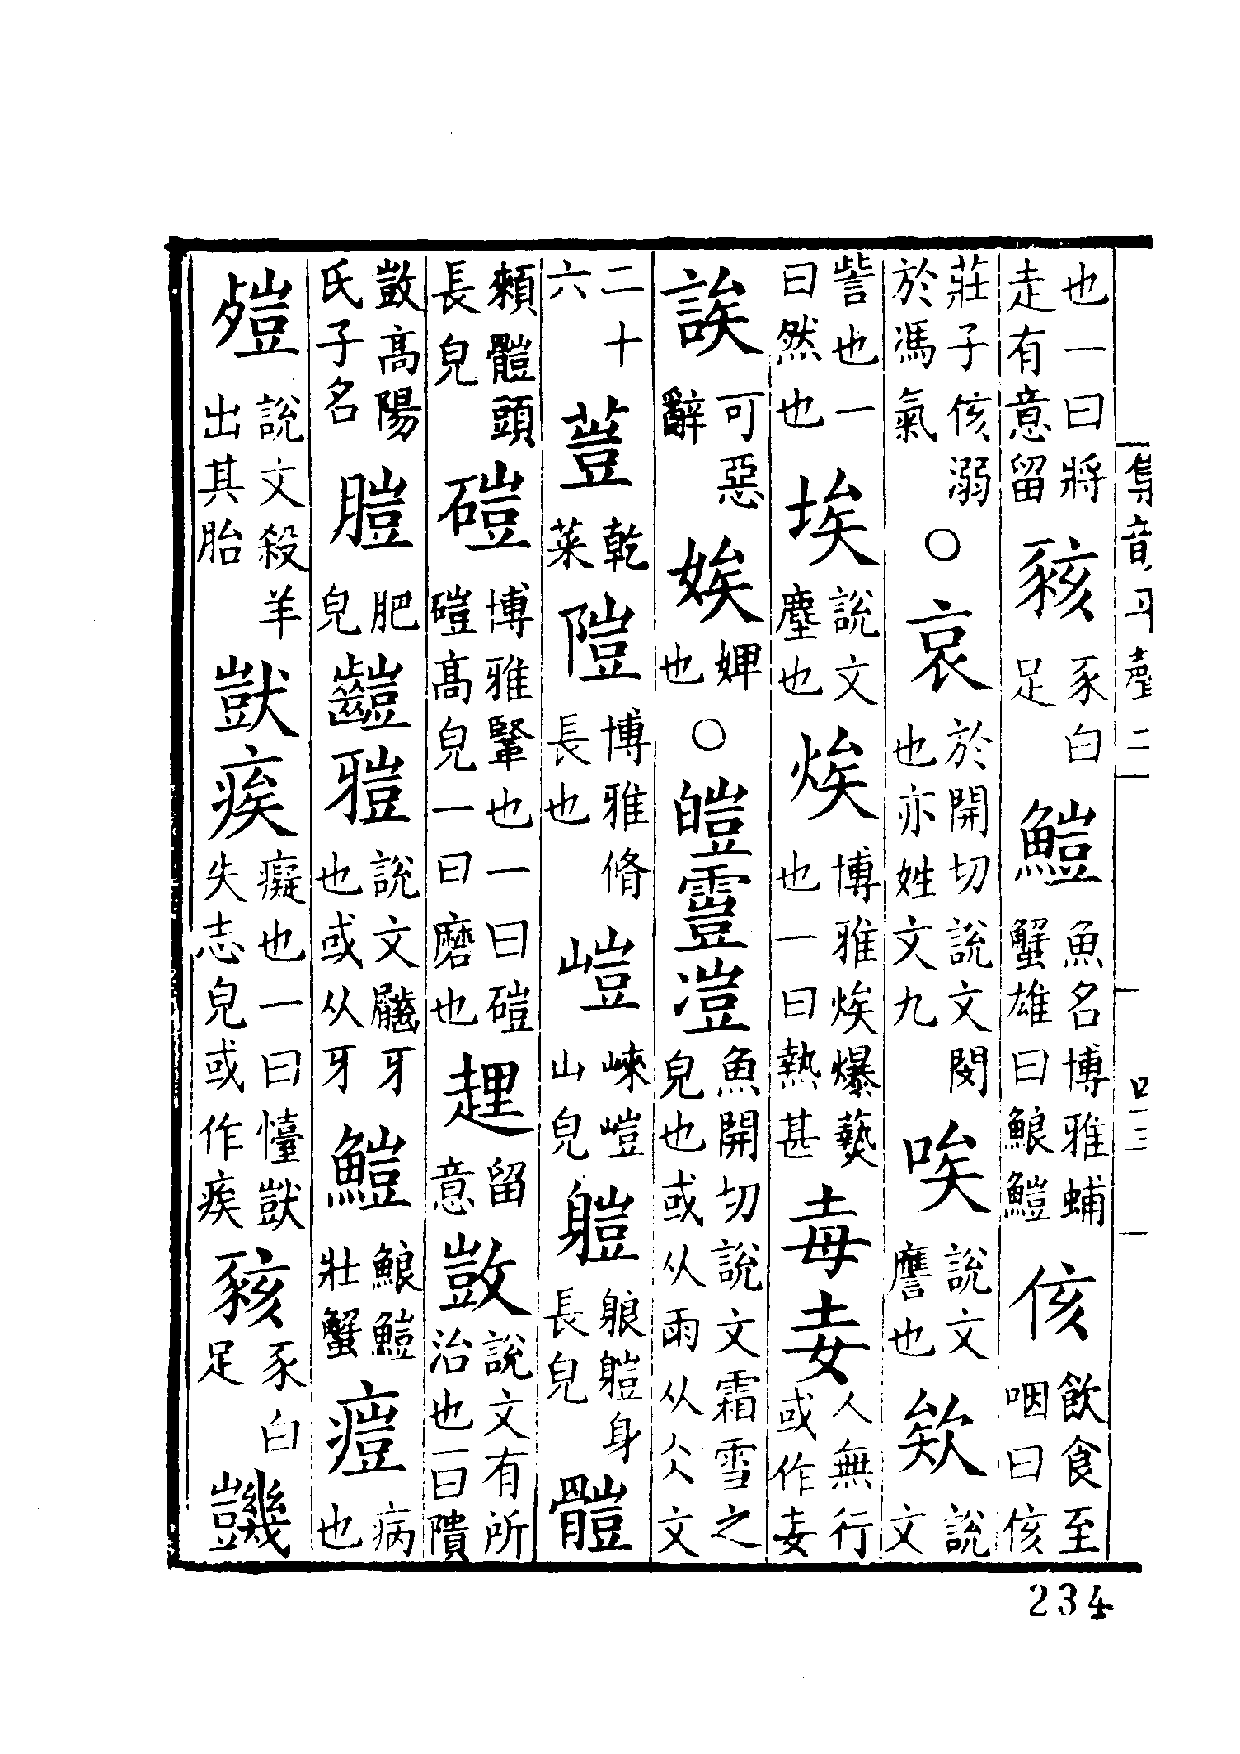 也一曰將走有意留 豥豕白足 𩹌魚名博雅蜅蟹雄曰鯨𩹌 侅飲食至咽曰侅
莊子侅溺於馮氣 ○ 哀於開切說文閔也亦姓文九 唉說文譍也 欸說文
訾也一曰然也 埃說文塵也 焥博雅焥爆爇也一曰熱甚 毐毐人無行或作毐
誒可惡辭 娭婢也 ○ 皚䨪溰魚開切說文霜雪之皃也或从雨从仌文
二十六 䔇乾菜 隑博雅脩長也 嵦崍嵦山皃 䠽躴䠽身長皃 䯰
頼䯰頭長皃 磑博雅䃀也一曰磑磑高皃一曰磨也 𧼭留意 敳說文有所治也一曰隤
敳高陽氏子名 𦞳肥皃 𪘲䶣說文𪙊牙也或从牙 𩹌鯨𩹌壯蟹 𤸳病也
𣩄說文殺羊出其胎 獃𤸖癡也一曰懛獃失志皃或作𤸖 豥豕白足 𧯦
集韻平聲二
四三
234